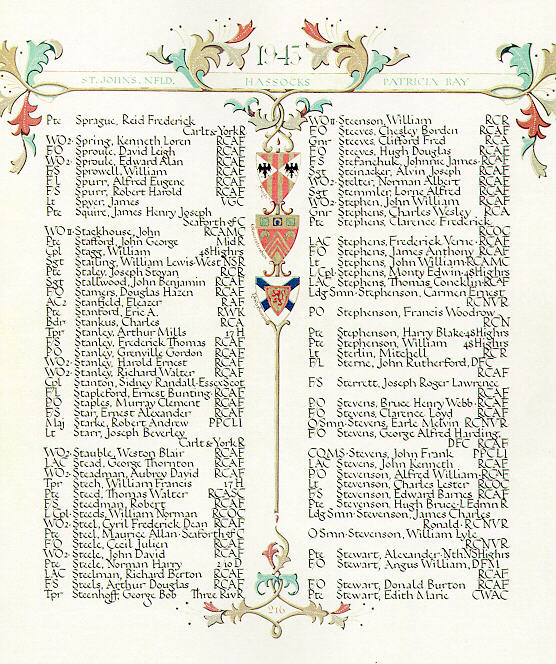 1945
ST. JOHNS, NFLD. HASSOCKS PATRICIA BAY
Pte Sprague, Reid Frederick
Carlt&YorkR
WO2 Spring, Kenneth Loren RCAF
FO Sproule, David Leigh RCAF
WO2 Sproule, Edward Alan RCAF
FS Sprowell, William RCAF
FL Spurr, Alfred Eugene RCAF
FS Spurr, Robert Harold RCAF
Lt Spyer, James VGC
Pte Squire, James Henry Joseph
Seaforth of C
WO II Stackhouse, John RCAMC
Pte Stafford, John George Mid R
Cpl Stagg, William 48Highrs
Sgt Stailing, William Lewis-West NSR
Pte Staley, Joseph Stoyan RCR
Sgt Stallwood, John Benjamin RCAF
PO Stamers, Douglas Hazen RCAF
AC2 Stanfield, Eleazer RAF
Pte Stanford, Eric A. RWK
Bdr Stankus, Charles RCA
Tpr Stanley, Arthur Mills 17 H
FS Stanley, Frederick Thomas RCAF
PO Stanley, Grenville Gordon RCAF
WO2 Stanley, Harold Ernest RCAF
WO2 Stanley, Richard Walter RCAF
Cpl Stanton, Sidney Randall-Essex Scot
FL Stapleford, Ernest Bunting-RCAF
PO Staples, Murray Clement RCAF
FS Star, Ernest Alexander RCAF
Maj Starke, Robert Andrew PPCLI
Lt Starr, Joseph Beverley
Carlt & York R
WO2 Stauble, Weston Blair RCAF
LAC Stead, George Thornton RCAF
WO2 Steadman, Aubrey David RCAF
Tpr Stech, William Francis 17 H
Pte Steed, Thomas Walter RCASC
FS Steedman, Robert RCAF
L Cpl Steeds, William Norman RCOC
WO2 Steel, Cyril Frederic Dean RCAF
Pte Steel, Maurice Allan-Seaforth of C
FO Steele, Cecil Julian RCAF
WO2 Steele, John David RCAF
Pte Steele, Norman Harry 2 10 D
LAC Steelman, Richard Berton RCAF
FS Steels, Arthur Douglas RCAF
Tpr Steenhoff, George Bob Three Riv R
WO II Steenson, William RCR
FO Steeves, Chesley Borden RCAF
Gnr Steeves, Clifford Fred RCA
FO Steeves, Hugh Douglas RCAF
FS Stefanchuk, Johnnie James-RCAF
Sgt Steinacker, Alvin Joseph RCAF
WO2 Stelter, Norman Albert RCAF
Sgt Stemmler, Lorne Alfred RCAF
WO2 Stephen, John William RCAF
Gnr Stephens, Charles Wesley RCA
Pte Stephens, Clarence Frederick
RCOC
LAC Stephens, Frederick Verne-RCAF
FO Stephens, James Anthony RCAF
Lt Stephens, John William-RCAMC
L/Cpl Stephens, Monty Edwin-48Highrs
LAC Stephens, Thomas Concklin RCAF
Ldg Smn-Stephenson, Carmen Ernest
RCNVR
PO Stephenson, Francis Woodrow
RCN
Pte Stephenson, Harry Blake 48Highrs
Pte Stephenson, William 48Highrs
Lt Sterlin, Mitchell RCR
FL Sterne, John Rutherford, DFC
RCAF
FS Sterrett, Joseph Roger Lawrence
RCAF
PO Stevens, Bruce Henry Webb-RCAF
FO Stevens, Clarence Loyd RCAF
O Smn-Stevens, Earle Melvin RCNVR
FO Stevens, George Alfred Harding,
DFC RCAF
CQMS-Stevens, John Frank PPCLI
LAC Stevens, John Kenneth RCAF
PO Stevenson, Alfred William-RCAF
Lt Stevenson, Charles Lester RCOC
FS Stevenson, Edward Barnes RCAF
Pte Stevenson, Hugh Bruce-L Edmn R
Ldg Smn-Stevenson, James Charles
Ronald-RCNVR
O Smn-Stevenson, William Lyle
RCNVR
Pte Stewart, Alexander-Nth NS Highrs
FO Stewart, Angus William, DFM
RCAF
FO Stewart, Donald Burton RCAF
Pte Stewart, Edith Marie CWAC
216